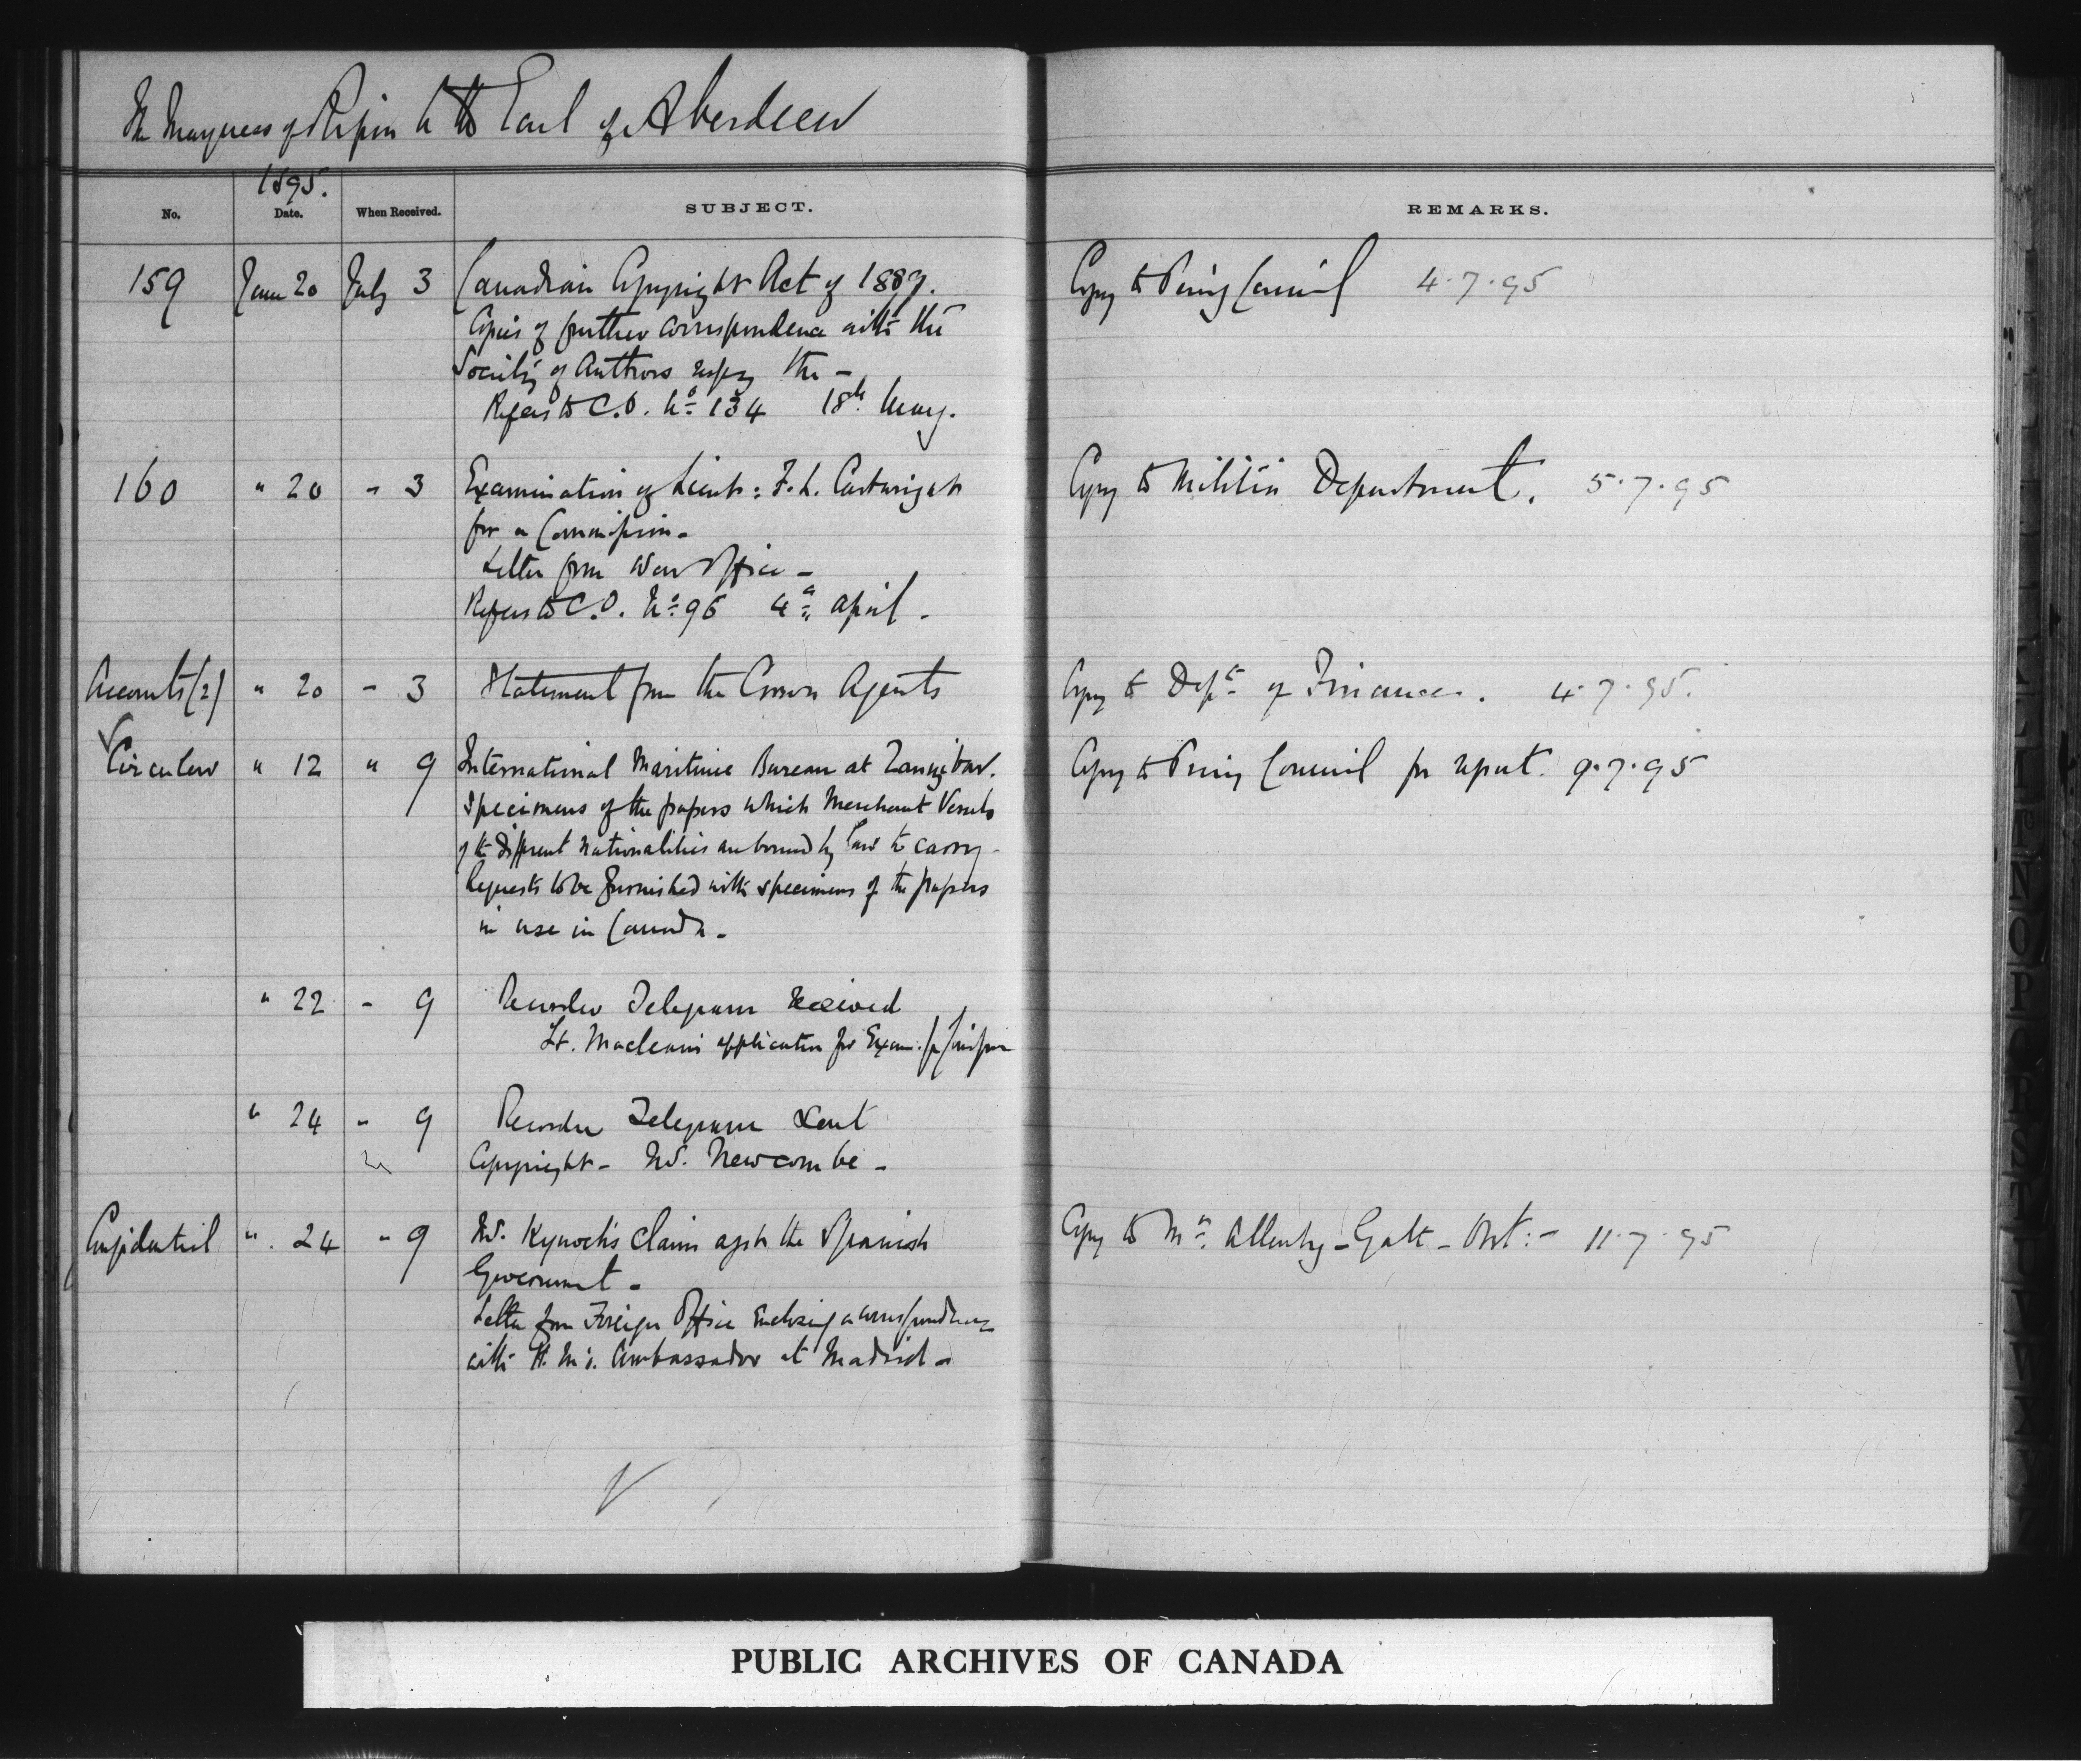 The Marquess of Ripon to the Earl of Aberdeen
1895.
No. Date. When Received. SUBJECT. REMARKS.
159 June 20 July 3 Canadian Copyright Act of 1889. Copy to Privy Council 4.7.95
Copies of further correspondence with the
Society of Authors respg the -
Refers to C.O. No 134 18th May.
160 " 20 " 3 Examination of Lieut: F. L. Cartwright Copy to Militia Department. 5.7.95
for a Commission -
Letter from War Office -
Refers to C.O. No 96 4th April -
Accounts (2) " 20 " 3 Statement from the Crown Agents Copy to Dept of Finance. 4.7.95.
Circular " 12 " 9 International Maritime Bureau at Zanzibar. Copy to Privy Council for report. 9.7.95
Specimens of the papers which Merchant Vessels
of the different nationalities are bound by law to carry -
Requests to be furnished with specimens of the papers
in use in Canada -
" 22 " 9 Recorder Telegram Received
Lt. Macleans application for Exam. for
" 24 " 9 Recorder Telegram Sent
Copyright - Newcombe -
Confidential " 24 " 9 Kynoch's claim agst the Spanish Copy to Mr. Allenby - Galt - Ont: - 11.7.95
Government -
Letter from Foreign Office Enclosing a correspondence
with H. M's. Ambassador at Madrid -
PUBLIC ARCHIVES OF CANADA